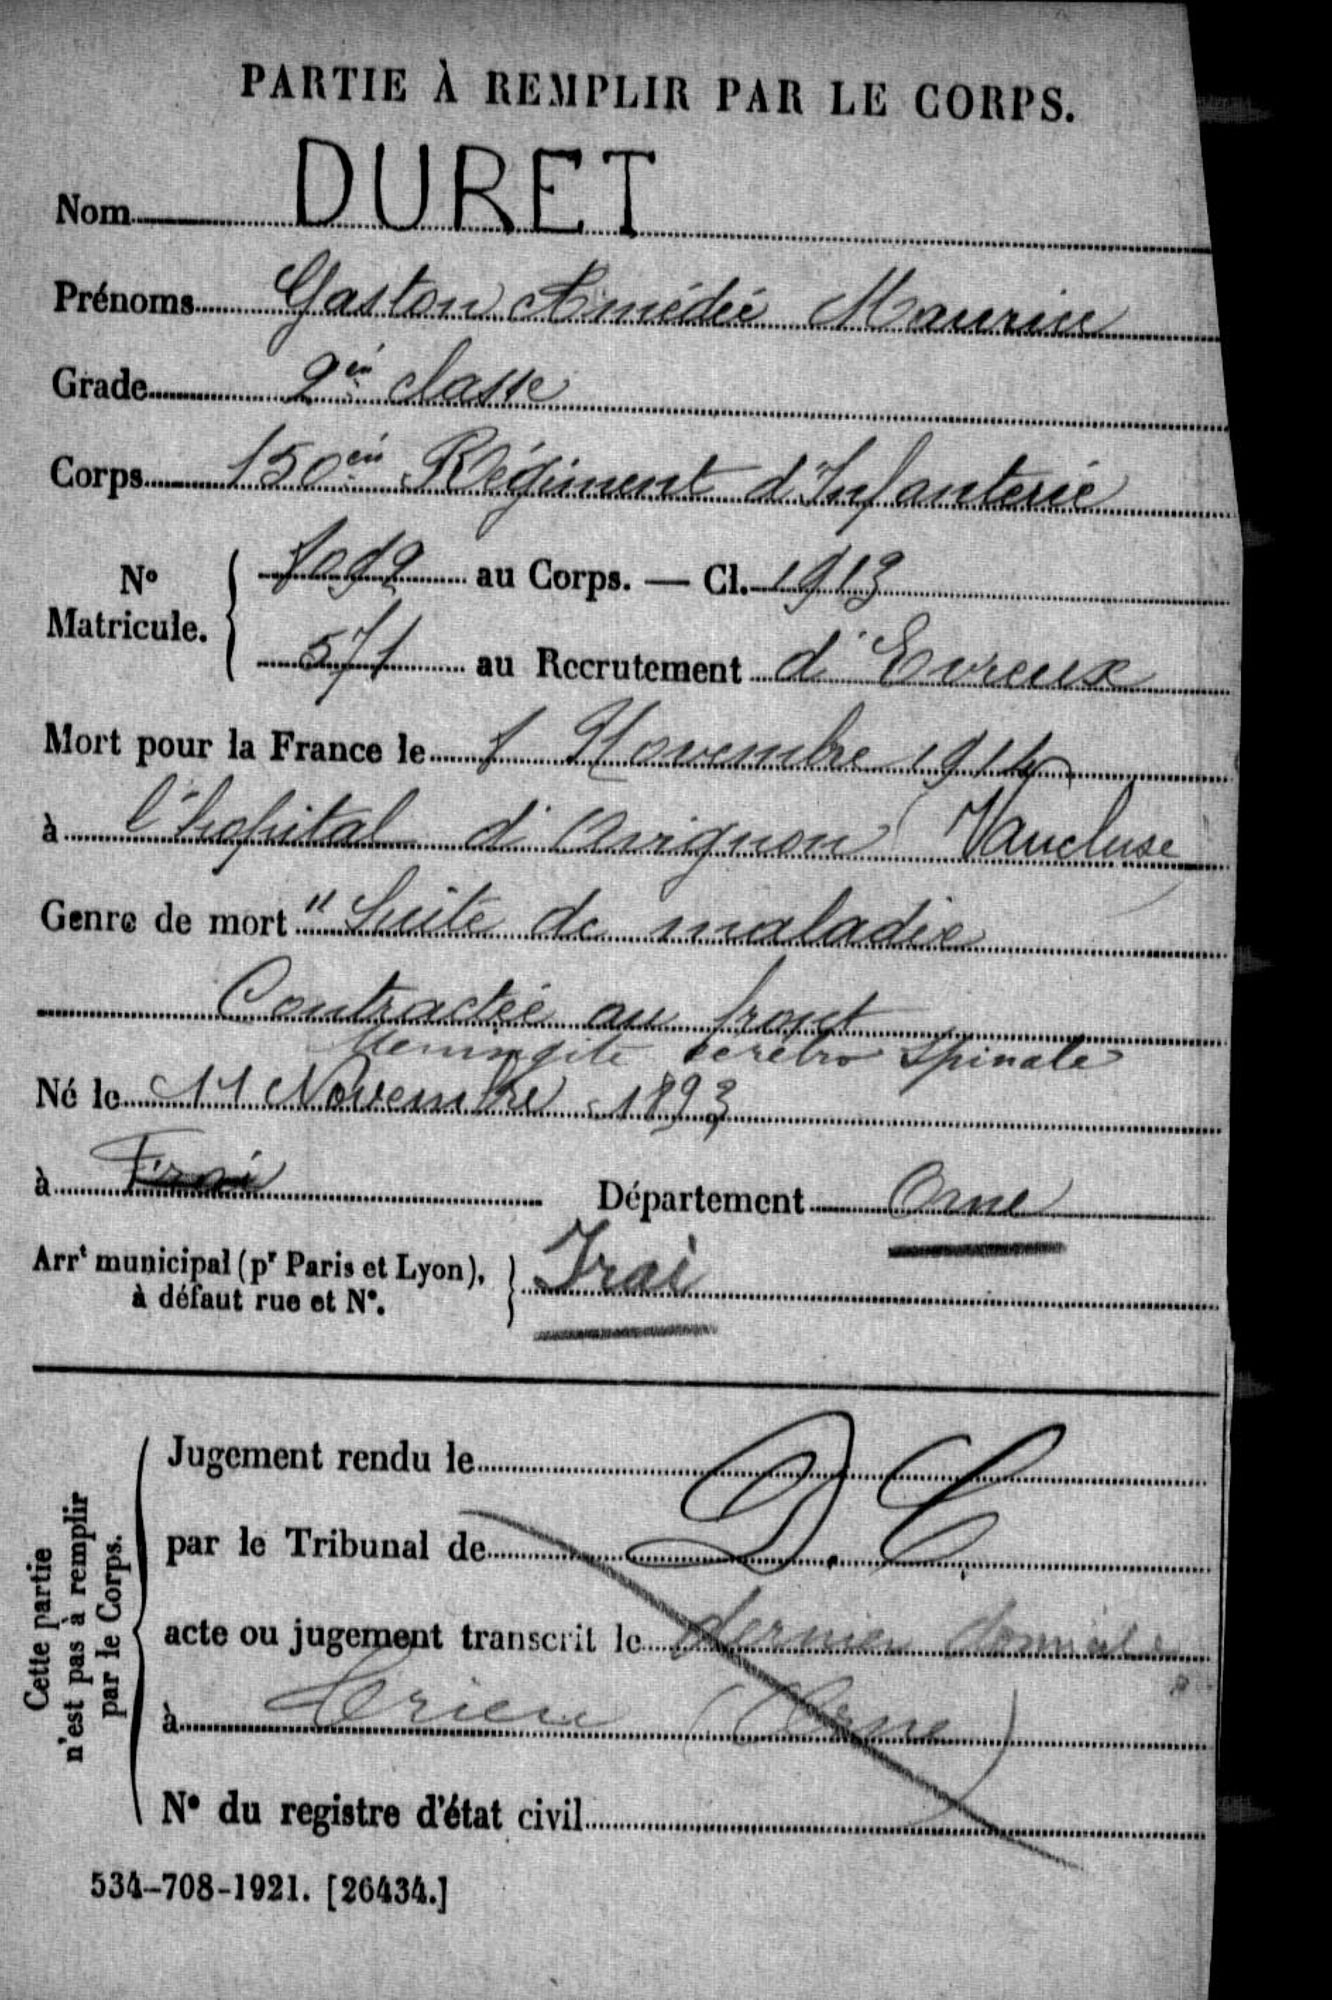 PARTIE À REMPLIR PAR LE CORPS.
Nom DURET
Prénoms Gaston Amédée Maurice
Grade 2è classe
Corps 150è Régiment d'Infanterie
N° Matricule. 1092 au Corps. — Cl. 1913
571 au Recrutement d'Evreux
Mort pour la France le 1 Novembre 1914
à l'hopital d'Avignon (Vaucluse
Genre de mort "Suite de maladie
Contractée au front
Meningite cérébro spinale
Né le 11 Novembre 1893
à Irai Département Orne
Arrt municipal (pr Paris et Lyon), à défaut rue et N°. Irai
Cette partie n'est pas à remplir par le Corps.
Jugement rendu le
par le Tribunal de D.C.
acte ou jugement transcrit le dernier domicile
à (Orne)
N° du registre d'état civil
534-708-1921. [26434.]